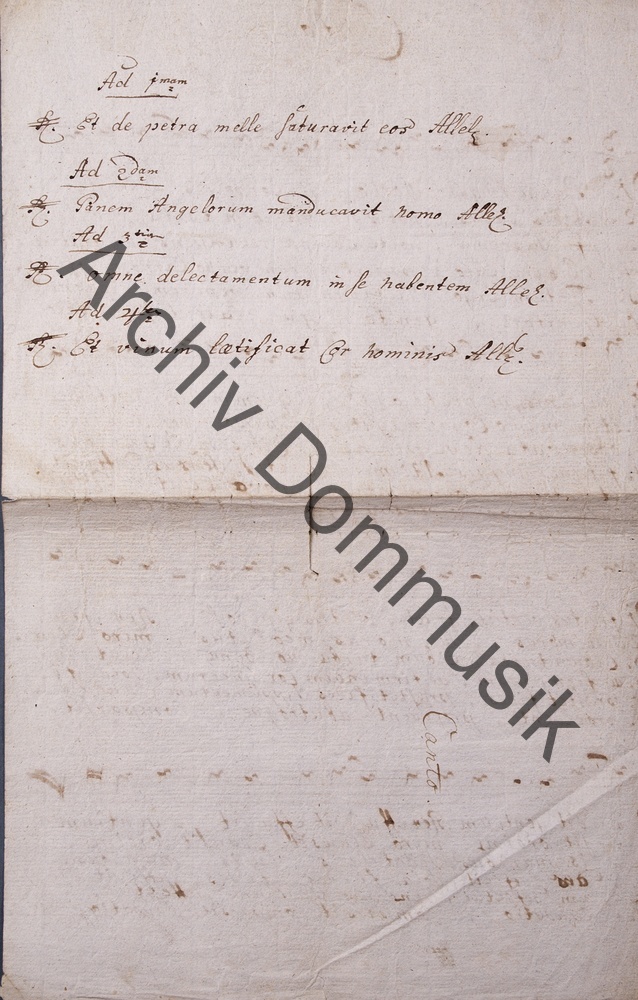 Ad 1mam
℟. Et de petra melle saturavit eos Allel.
Ad 2dam
℟. Panem Angelorum manducavit homo Allel.
Ad 3tiam
℟. omne delectamentum in se habentem Allel.
Ad 4tam
℟. Et vinum lætificat Cor hominis All.
Canto.
Archiv Dommusik